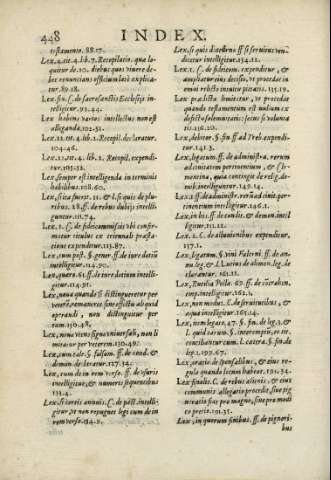 448 INDEX.
testamento. 88.17.
Lex. 4. tit. 4. lib. 7. Recopilatio. quæ lo-
quitur de 20. diebus quos vivere de-
bet renuncians officium latè explica-
tur. 89.18.
Lex fin. C. de sacrosanctis Ecclesijs in-
telligitur. 92.44.
Lex habens varios intellectus non est
alleganda. 102.31.
Lex 12. tit. 4. lib. 2. Recopil. declaratur.
104.46.
Lex 2. tit. 4. lib. 2. Recopil. expendi-
tur. 105.52.
Lex semper est intelligenda in terminis
habilibus. 108.60.
Lex si ita fuerit. 21. & l. si quis de plu-
ribus. 28. ff. de rebus dubijs intelli-
guntur. 111.74.
Lex 2. C. de fideicommissis vbi confir-
matur titulus ex tribunali præsta-
tione expenditur. 113.87.
Lex cum post. §. gener. ff. de iure dotiū
intelligitur. 114.90.
Lex quæro. 61. ff. de iure dotium intelli-
gitur. 114.91.
Lex noua quando
venere, remanens sine effectu aliquid
operandi, non distinguitur per
eam. 130.48.
Lex nouo verso signo vniuersali, non li
mitatur per veterem. 130.49.
Lex cum tale. §. falsam. ff. de cond. &
demon. declaratur. 127.34.
Lex, cum de in rem verso. ff. de vsuris
intelligitur, & numeris sequentibus
133.4.
Lex si certis annuis. C. de pact. intelli-
gitur vt non repugnet legi cum de in
rem verso. 134.8.
Lex si quis dixellerit ff. si seruitus ven-
dicetur intelligitur. 134.12.
Lex 1. C. de fideicom. expenditur, &
ampliatur eius decisio, vt procedat in
omni relicto inuitæ pietatis. 135.19.
Lex prædicta limitatur, vt procedat
quando testamentum non possidetur ex
defectu solemnitatis: secus si voluntatis
136.20.
Lex, debitor. §. fin. ff. ad Treb. expendi-
tur. 141.3.
Lex, legatum. ff. de administra. rerum
ad ciuitatem pertinentium & l. he-
rennia, qua contingit de relig. do-
mib. intelliguntur. 149.14.
Lex 1. ff. de administra. rerū ad ciuit. per-
tinentium intelligitur. 246.1.
Lex in his. ff. de condit. & demon. intel
ligitur. 211.12.
Lex 2. C. de alluuionibus expenditur.
157.1.
Lex, legatum. §. vini Falerni. ff. de an.
nu. leg. & l. Lucius de alimen. leg. de
clarantur. 161.11.
Lex, Rutilia Polla. 69. ff. de contrahen.
emp. intelligitur. 161.2.
Lex, non modus. C. de seruitutibus, &
aqua intelligitur. 163.3.
Lex, nomen legare, 47. §. fin. de leg. 3. &
l. quid ergo. §. interemptum, ex eo. re-
conciliantur cum l. cætera. §. fin. de
leg. 1. 190.67.
Lex, oratio de sponsalibus, & eius re-
gula quando locum habeat. 191.34.
Lex finalis. C. de rebus alienis, & eius
communis allegatio procedit, siue pig
noratio siue pro magno, siue pro modi
co pretio. 191.35.
Lex, in quorum finibus. ff. de pignori-
bus